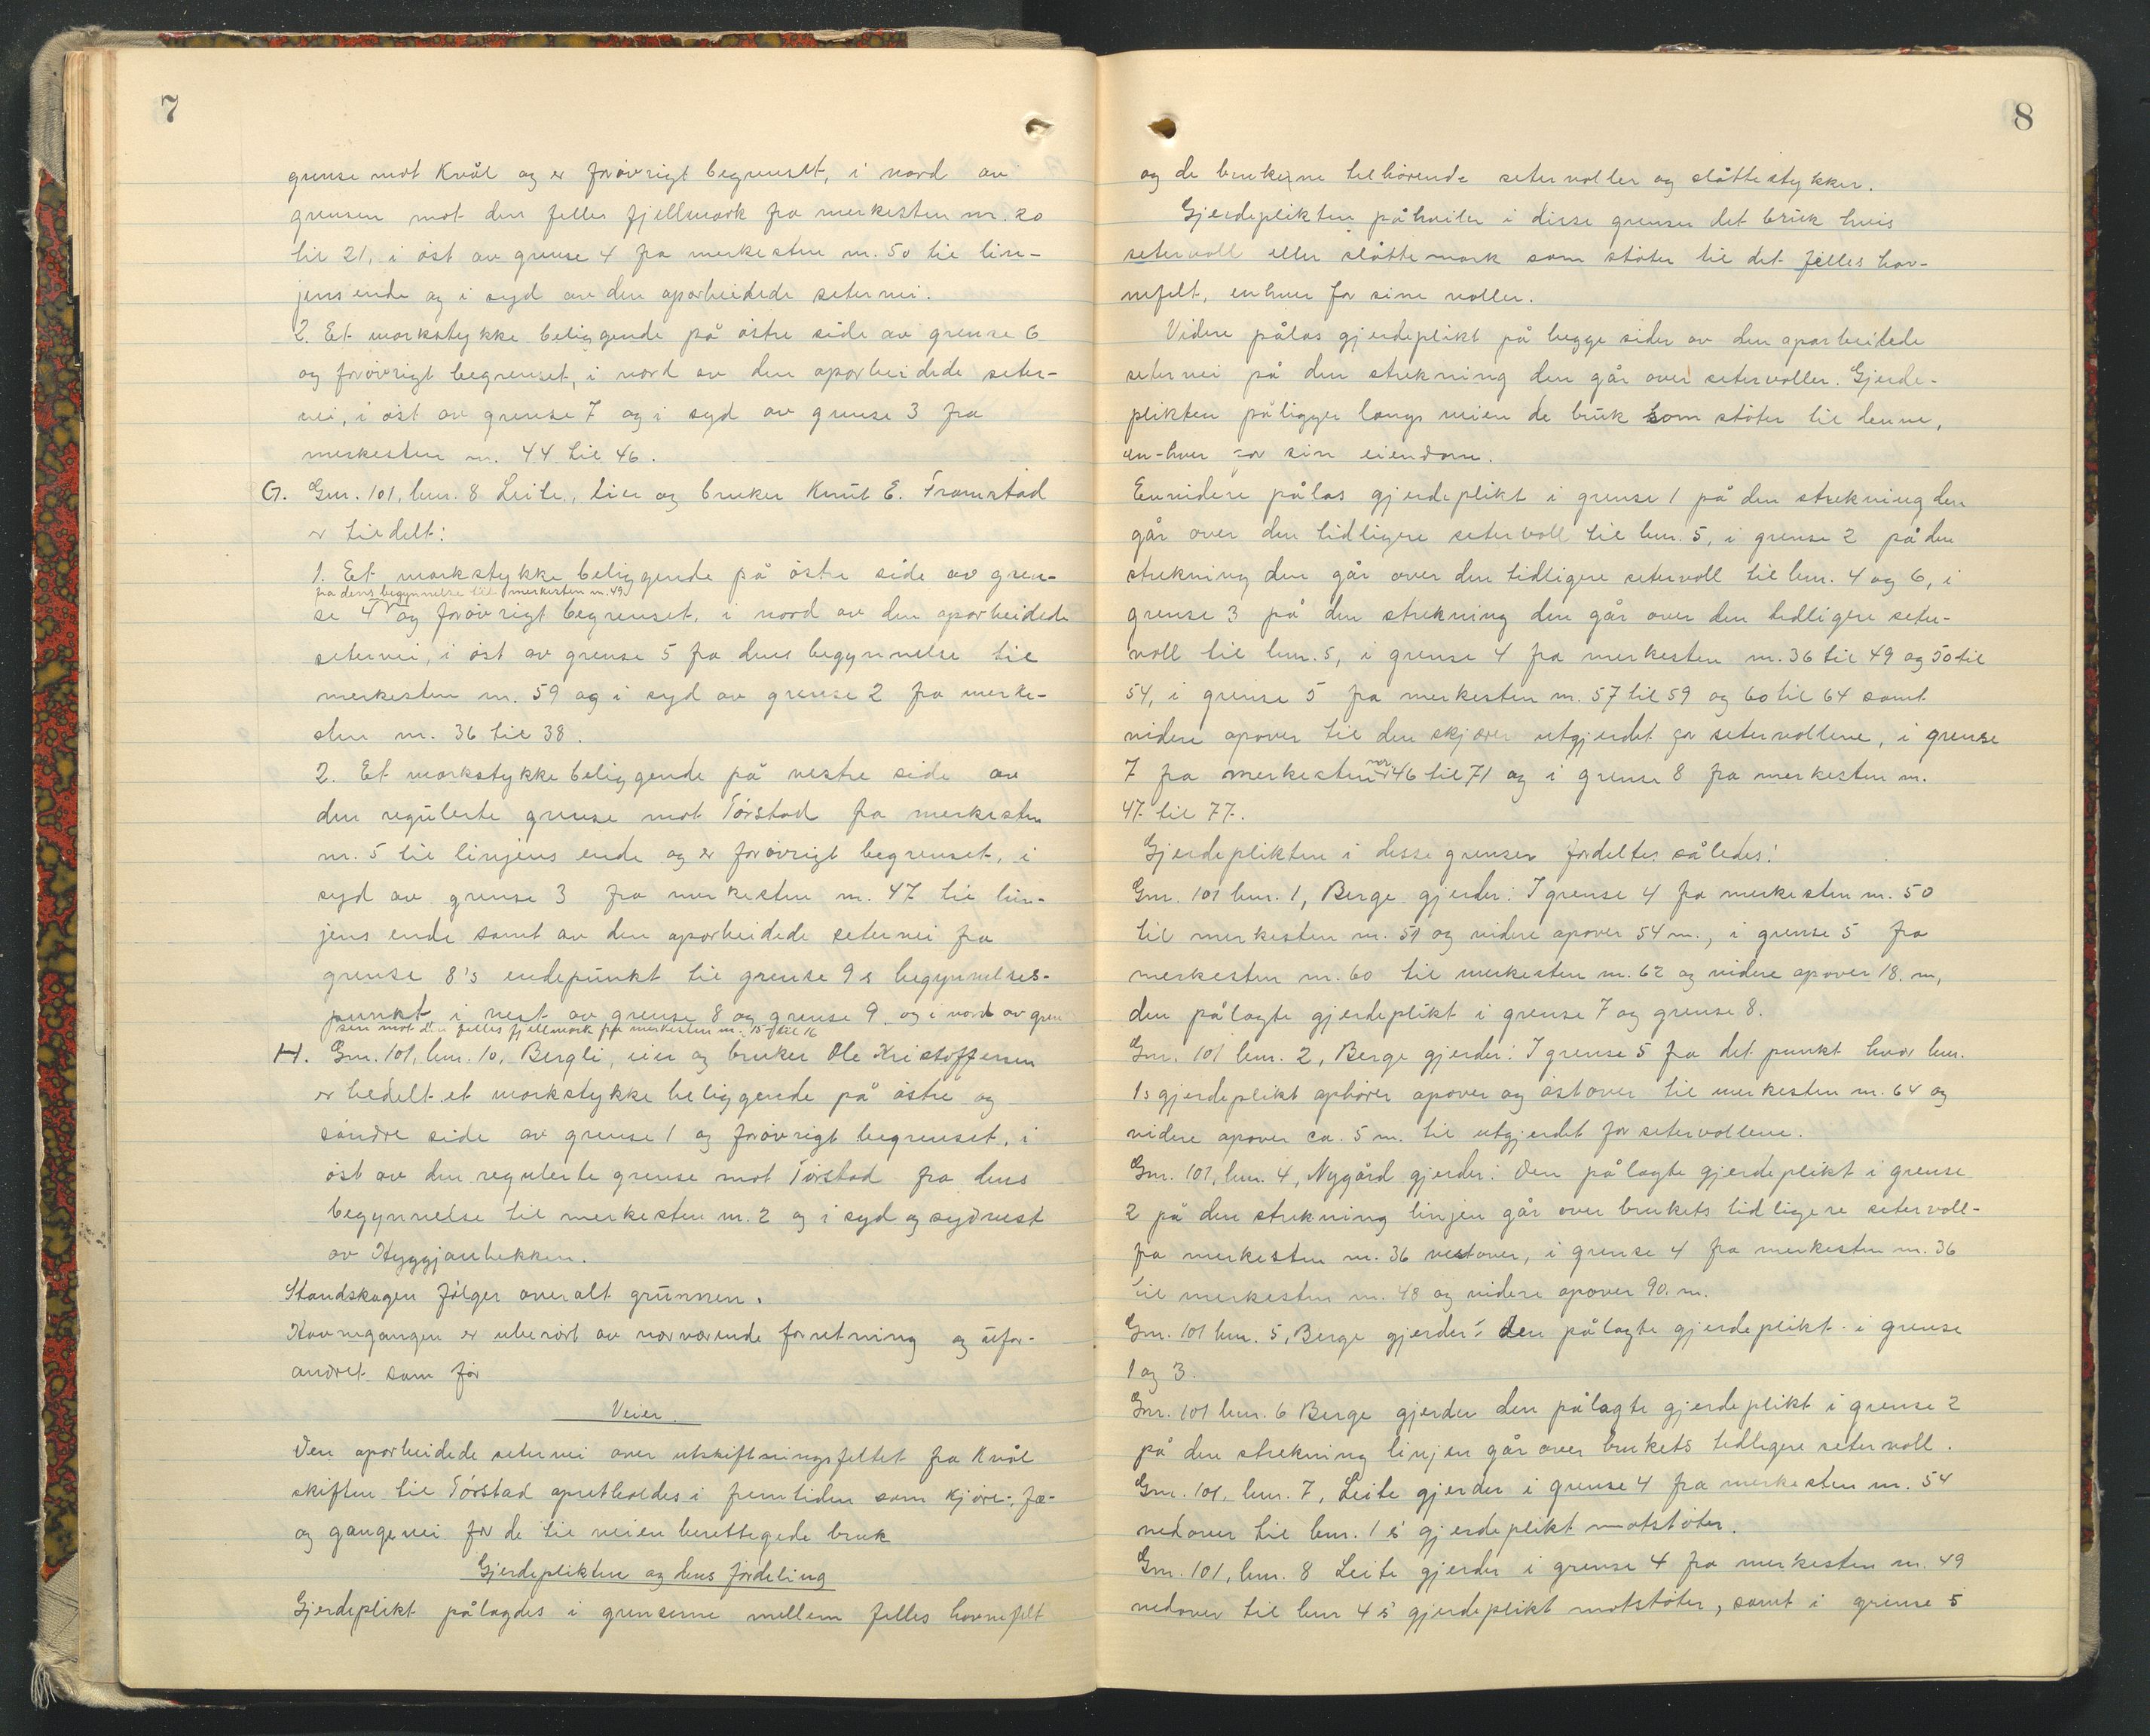 7
grense mot Kvål og er forøvrigt begrenset, i nord av
grensen mot den felles fjellmark fra merkesten nr. 20
til 21, i øst av grense 4 fra merkesten nr. 50 til lin-
jens ende og i syd av den oparbeidede setervei.
2. Et markstykke beliggende på østre side av grense 6
og forøvrigt begrenset, i nord av den oparbeidede seter-
vei, i øst av grense 7 og i syd av grense 3 fra
merkesten nr. 44 til 46.
G. Gnr. 101, bnr. 8 Leite, eier og bruker Knut E. Framstad
er tildelt:
1. Et markstykke beliggende på østre side av gren-
fra dens begynnelse til merkesten nr. 49
se 4 og forøvrigt begrenset, i nord av den oparbeidede
setervei, i øst av grense 5 fra dens begynnelse til
merkesten nr. 59 og i syd av grense 2 fra merke-
sten nr. 36 til 38.
2. Et markstykke beliggende på vestre side av
den regulerte grense mot Tørstad fra merkesten
nr. 5 til linjens ende og er forøvrigt begrenset, i
syd av grense 3 fra merkesten nr. 47 til lin-
jens ende samt av den oparbeidede setervei fra
grense 8's endepunkt til grense 9s begynnelses-
punkt, i vest av grense 8 og grense 9 og i nord av gren
sen mot den felles fjellmark fra merkesten nr. 15 til 16
H. Gnr. 101, bnr. 10, Bergli, eier og bruker Ole Kristoffersen
er tildelt et markstykke beliggende på østre og
søndre side av grense 1 og forøvrigt begrenset, i
øst av den regulerte grense mot Tørstad fra dens
begynnelse til merkesten nr. 2 og i syd og sydvest
av Hyggjanbekken.
Standskogen følger overalt grunnen.
Havnegangen er uberørt av nærværende forretning og ufor-
andret som før
Veier.
Den oparbeidede setervei over utskiftningsfeltet fra Kvål
skiften til Tørstad opretholdes i fremtiden som kjøre-, fæ-
og gangevei for de til veien berettigede bruk
Gjerdeplikten og dens fordeling
Gjerdeplikt pålagdes i grenserne mellem felles havnefelt
8
og de brukerne tilhørende setervoller og slåttestykker.
Gjerdeplikten påhviler i disse grenser det bruk hvis
setervoll eller slåttemark som støter til det felles hav-
nefelt, enhver for sine voller.
Videre pålas gjerdeplikt på begge sider av den oparbeidede
setervei på den strekning den går over setervoller. Gjerde-
plikten påligger langs veien de bruk som støter til denne,
en-hver for sin eiendom.
Envidere pålas gjerdeplikt i grense 1 på den strekning den
går over den tidligere setervoll til bnr. 5, i grense 2 på den
strekning den går over den tidligere setervoll til bnr. 4 og 6, i
grense 3 på den strekning den går over den tidligere seter-
voll til bnr. 5, i grense 4 fra merkesten nr. 36 til 49 og 50 til
54, i grense 5 fra merkesten nr. 57 til 59 og 60 til 64 samt
videre opover til den skjærer utgjerdet for setervollene, i grense
7 fra merkesten nr. 46 til 71 og i grense 8 fra merkesten nr.
47 til 77.
Gjerdeplikten i disse grenser fordeltes således:
Gnr. 101 bnr. 1, Berge gjerder: I grense 4 fra merkesten nr. 50
til merkesten nr. 51 og videre opover 54 m., i grense 5 fra
merkesten nr. 60 til merkesten nr. 62 og videre opover 18. m,
den pålagte gjerdeplikt i grense 7 og grense 8.
Gnr. 101 bnr. 2, Berge gjerder: I grense 5 fra det punkt hvor bnr.
1s gjerdeplikt ophører opover og østover til merkesten nr. 64 og
videre opover ca. 5 m. til utgjerdet for setervollene.
Gnr. 101, bnr. 4, Nygård gjerder: Den pålagte gjerdeplikt i grense
2 på den strekning linjen går over brukets tidligere setervoll-
fra merkesten nr. 36 vestover, i grense 4 fra merkesten nr. 36
til merkesten nr. 48 og videre opover 90. m.
Gnr. 101 bnr. 5, Berge gjerder: den pålagte gjerdeplikt i grense
1 og 3.
Gnr. 101 bnr. 6 Berge gjerder den pålagte gjerdeplikt i grense 2
på den strekning linjen går over brukets tidligere setervoll.
Gnr. 101, bnr. 7, Leite gjerder i grense 4 fra merkesten nr. 54
nedover til bnr. 1s gjerdeplikt motstøter.
Gnr. 101, bnr. 8 Leite gjerder i grense 4 fra merkesten nr. 49
nedover til bnr 4s gjerdeplikt motstøter, samt i grense 5